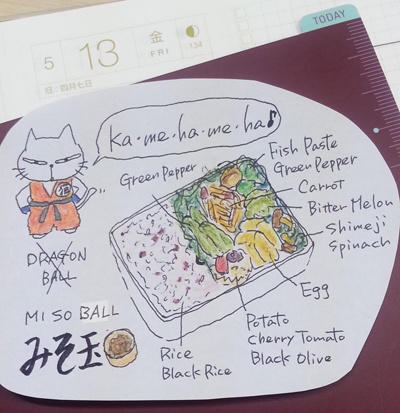 TODAY
5
13
金
FRI
134
旧:四月七日
ka·me·ha·me·ha♪
Green Pepper
Fish Paste
Green Pepper
Carrot
Bitter Melon
Shimeji
Spinach
Egg
DRAGON
BALL
MISO BALL
みそ玉
Rice
Black Rice
Potato
Cherry Tomato
Black Olive